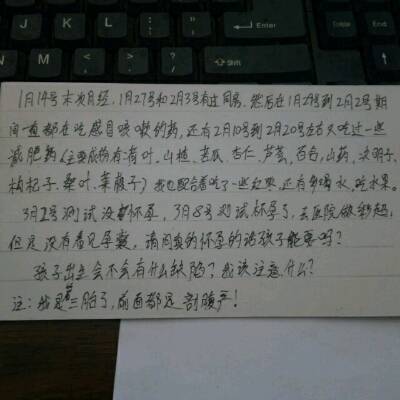 K
L
Enter
M
Shift
End
1月14号末次月经,1月27号和2月3号有过同房,然后在1月29号到2月2号期
间一直都在吃感冒咳嗽的药,还有2月10号到2月20号左右又吃过一些
减肥药(主要成份有:荷叶、山楂、苦瓜、杏仁、芦荟、百合、山药、决明子、
枸杞子、桑叶、莱菔子)我也配合着吃了一些红枣,还有多喝水,吃水果。
3月2号测试没有怀孕,3月8号测试怀孕了,去医院做彩超,
但是没有看见孕囊,请问真的怀孕的话孩子能要吗?
孩子出生会不会有什么缺陷?我该注意什么?
注:我是第三胎了,前面都是剖腹产!